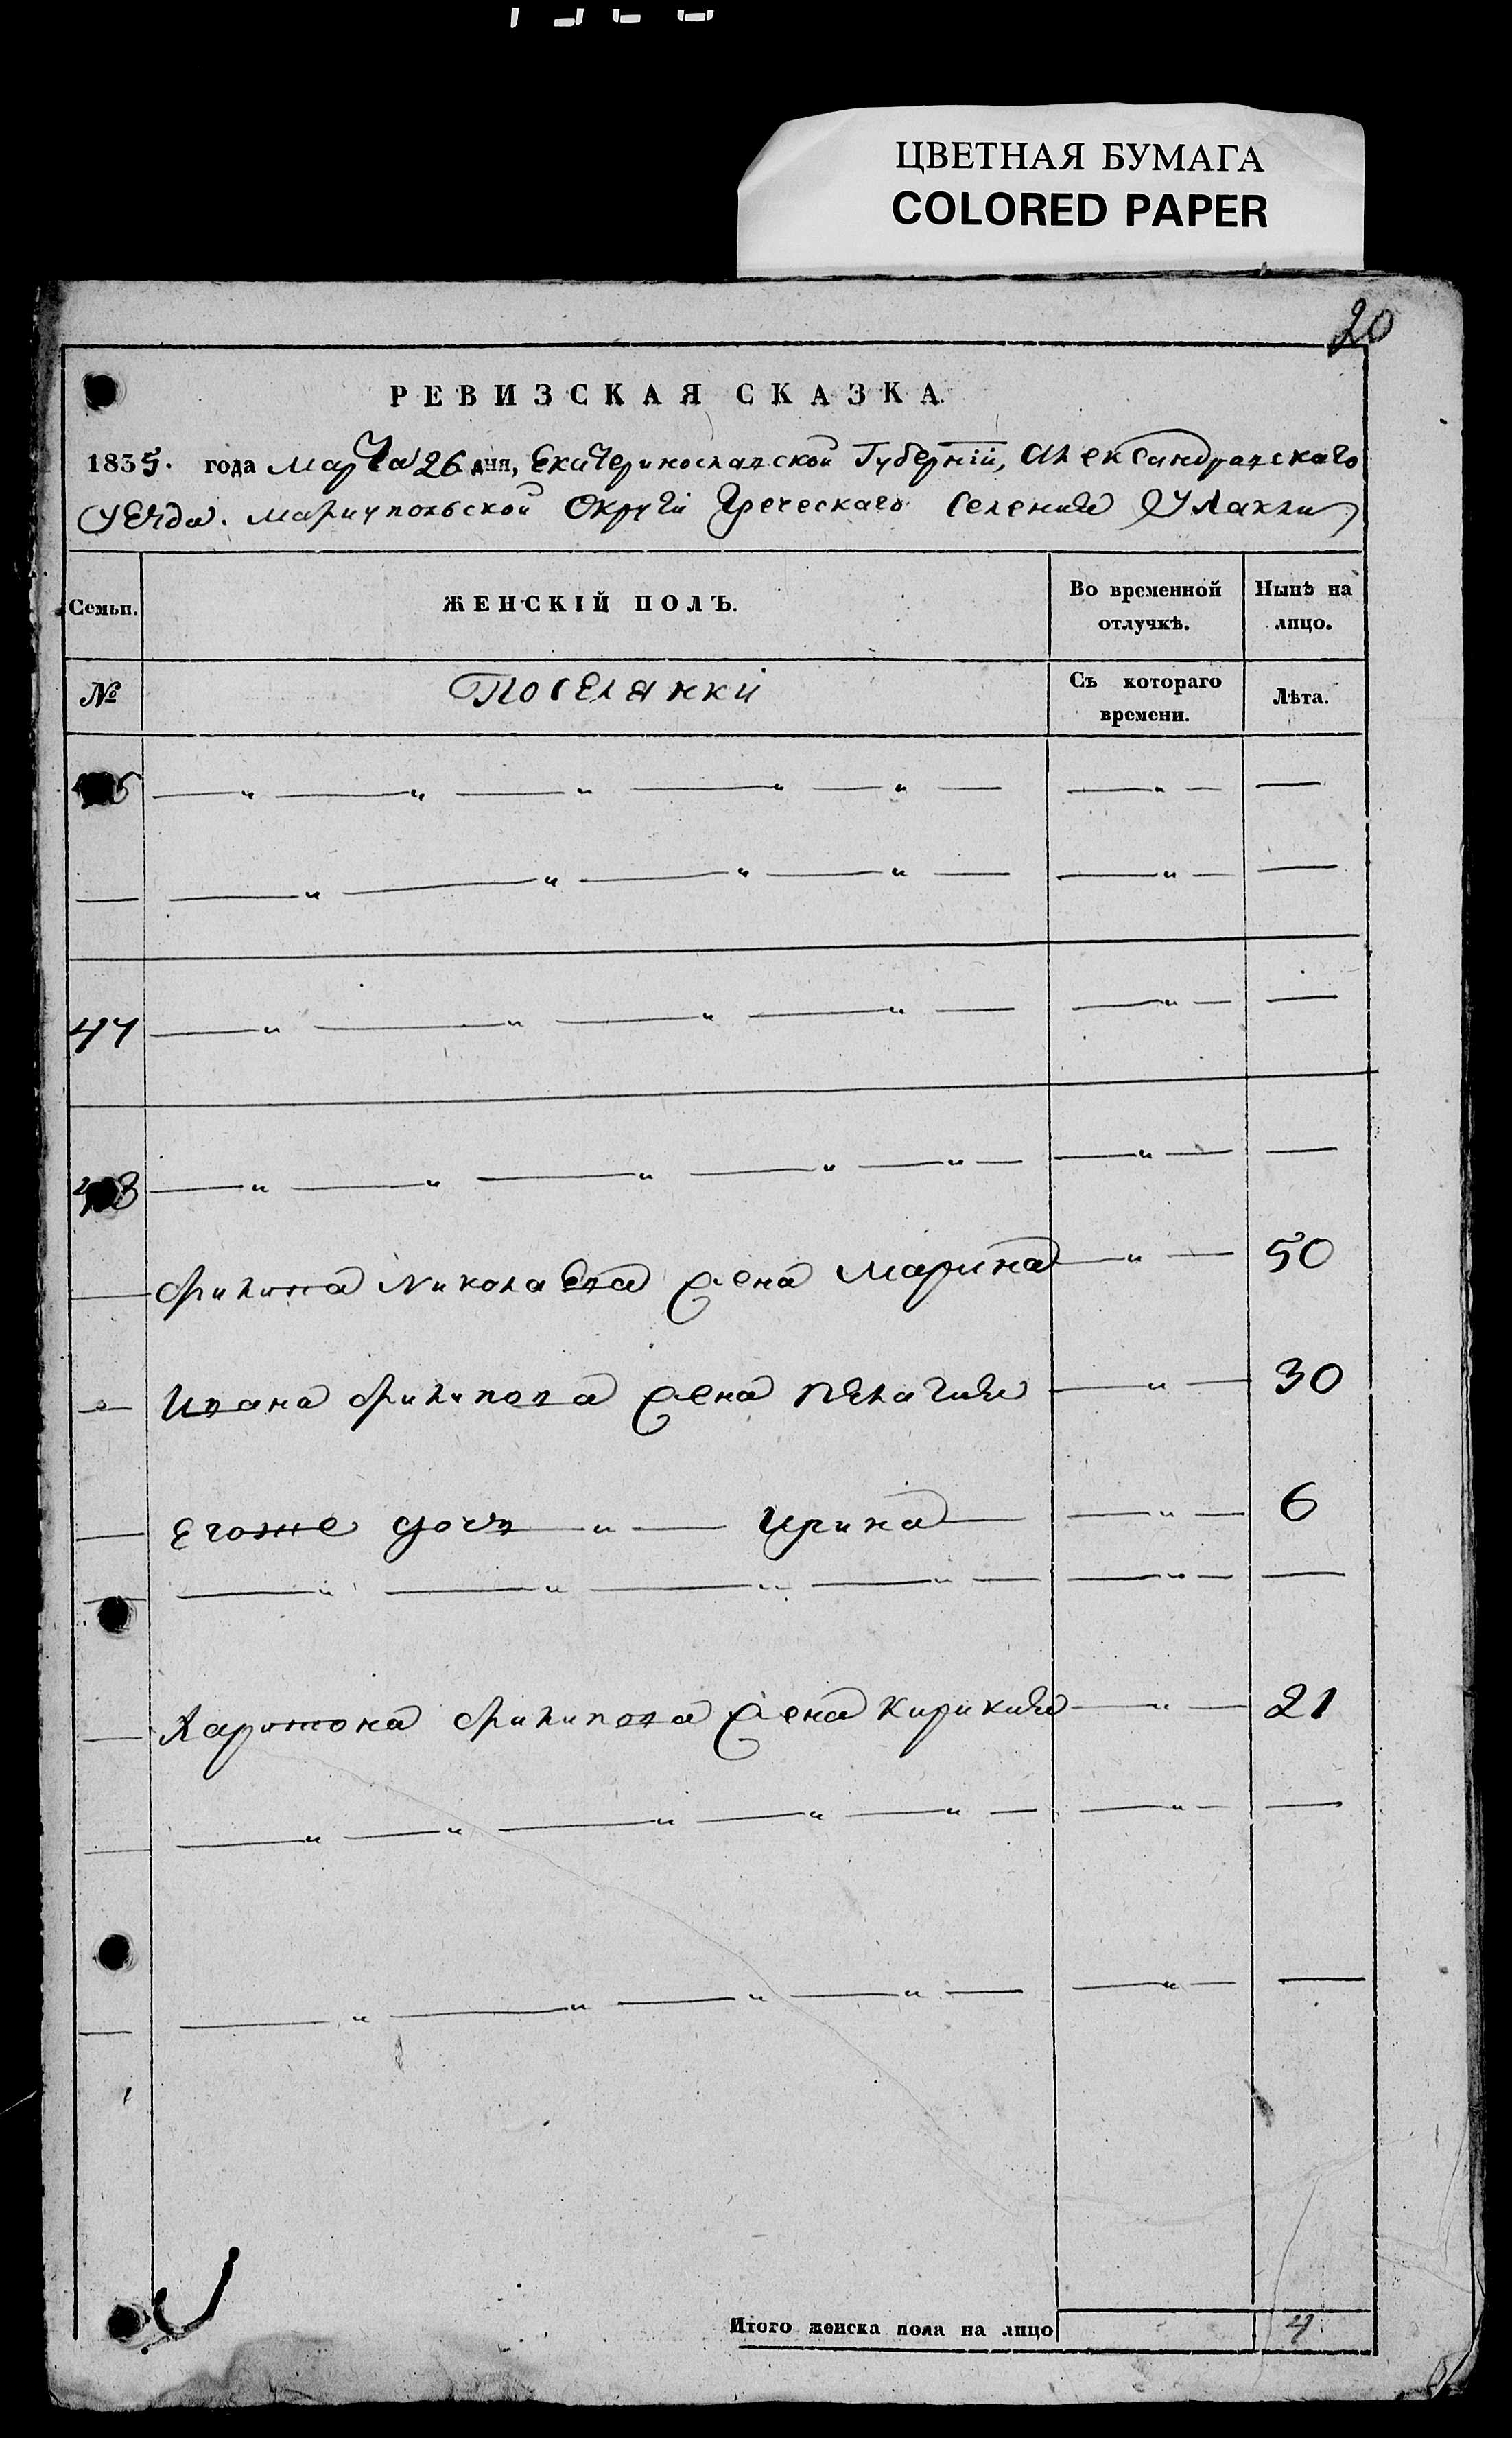 ЦВЕТНАЯ БУМАГА
COLORED PAPER
20
РЕВИЗСКАЯ СКАЗКА.
1835. года Марта 26 дня, Екатеринославской Губерніи, Александровскаго
Уезда. Мариупольской Округи Греческаго Селения Улаклы
Семьи. ЖЕНСКІЙ ПОЛЪ. Во временной отлучкѣ. Нынѣ на лицо.
№ Поселянки Съ котораго времени. Лѣта.
— " — " — " — " — " — — " — —
— — " — " — " — " — — " — —
47 — " — " — " — " — — " — —
48 — " — " — " — " — " — — " — —
— Филипа Николаева жена Марина — " — 50
— Ивана Филипова жена Пелагия — " — 30
— Егоже дочь — " — Ирина — — " — 6
— — " — " — " — " — — " — —
— Харитона Филипова жена Кирикия — " — 21
— — " — " — " — " — " — — " — —
— — " — " — " — " — — " — —
Итого женска пола на лицо 4